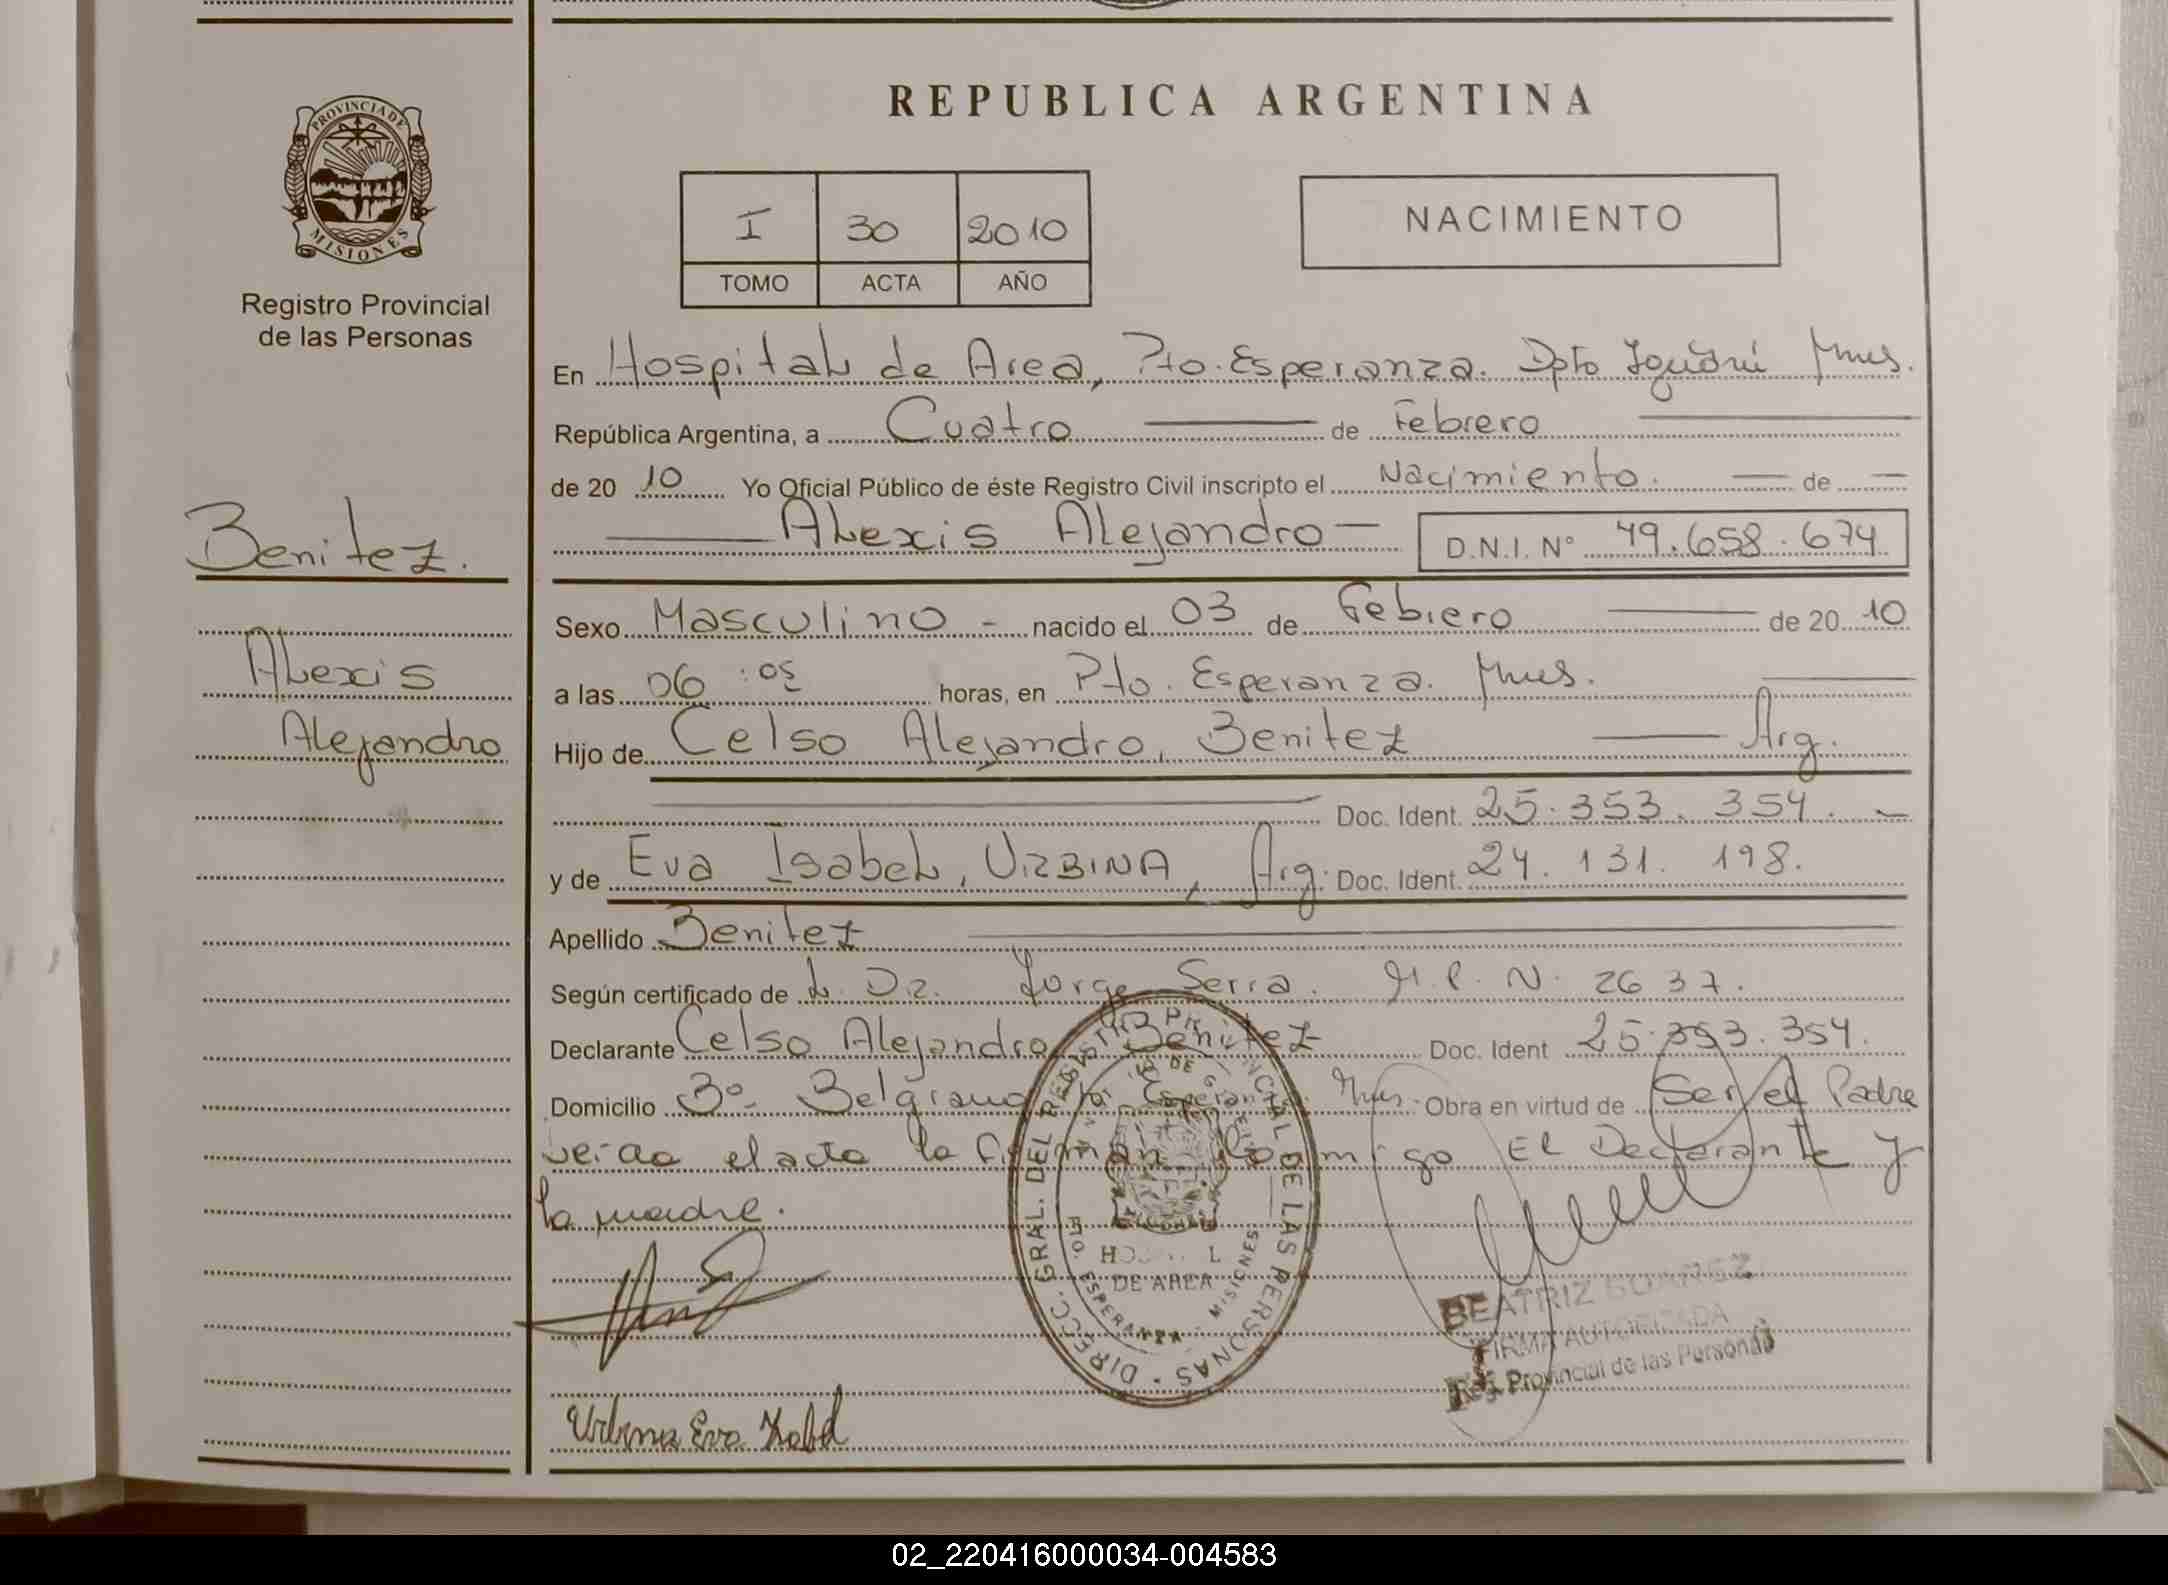 REPUBLICA ARGENTINA
PROVINCIA DE
MISIONES
Registro Provincial
de las Personas
I 30 2010
TOMO ACTA AÑO
NACIMIENTO
En Hospital de Area, Pto. Esperanza. Dpto Iguazú Mnes.
República Argentina, a Cuatro de Febrero
de 20 10 Yo Oficial Público de éste Registro Civil inscripto el Nacimiento. de
Alexis Alejandro D.N.I. N° 49.658.674
Benitez.
Alexis
Alejandro
Sexo Masculino - nacido el 03 de Febrero de 20 10
a las 06:05 horas, en Pto. Esperanza. Mnes.
Hijo de Celso Alejandro, Benitez Arg.
Doc. Ident. 25.353.354.
y de Eva Isabel, URBINA, Arg. Doc. Ident. 24.131.198.
Apellido Benitez
Según certificado de L. Dr. Jorge Serra. M.P.N. 2637.
Declarante Celso Alejandro Benitez Doc. Ident 25.353.354.
Domicilio Bº Belgrano Pto Esperanza. Mnes. Obra en virtud de Ser el Padre
Leida el acta la firman conmigo El Declarante y
la madre.
DIRECC. GRAL. DEL REGISTRO PROVINCIAL DE LAS PERSONAS
DE AREA
PTO. ESPERANZA - MISIONES
BEATRIZ
FIRMA AUTORIZADA
Reg. Provincial de las Personas
Urbina Eva Isabel
02_220416000034-004583